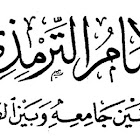 مام الترمذ
ين جامعه وبين ال